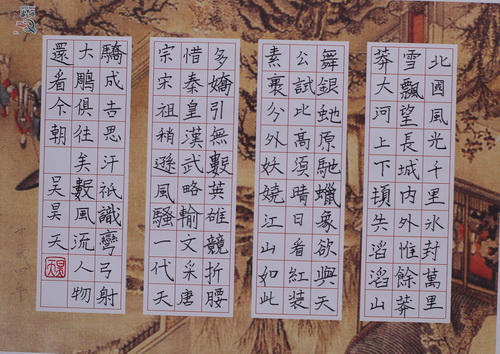 北國風光千里氷封萬里
雪飄望長城內外惟餘莽
莽大河上下頓失滔滔山
舞銀虵原馳蠟象欲與天
公試比高須晴日看紅裝
素裹分外妖嬈江山如此
多嬌引無數英雄競折腰
惜秦皇漢武略輸文采唐
宗宋祖稍遜風騷一代天
驕成吉思汗祇識彎弓射
大鵰俱往矣數風流人物
還看今朝 吳昊天